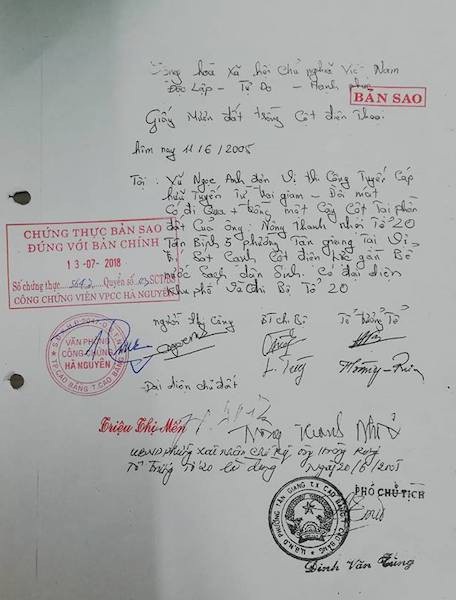 Cộng hòa Xã hội Chủ nghĩa Việt Nam
Độc Lập - Tự Do - Hạnh phúc
BẢN SAO
Giấy Mượn đất trồng Cột điện thoại
hôm nay 11/6/2005
Tôi: Vũ Ngọc Anh đơn Vị thi Công Tuyến Cáp
hữu Tuyến Từ trại giam - Đôi mát
Có đi Qua + trồng một Cây Cột Tại phần
đất Của ông: Nông Thanh Nhời Tổ 20
Tân Bình 5 phường Tân giang Tại Vị
trí Sát Cạnh Cột điện hè gần Bể
nước Sạch dân Sinh. Có đại diện
khu phố Và Chi Bộ Tổ 20
CHỨNG THỰC BẢN SAO
ĐÚNG VỚI BẢN CHÍNH
13-07-2018
Số chứng thực Quyển số SCT/BS
CÔNG CHỨNG VIÊN VPCC HÀ NGUYÊN
người Thi Công BT chi Bộ Tổ trưởng Tổ
VĂN PHÒNG
CÔNG CHỨNG
HÀ NGUYÊN
TP.CAO BẰNG T.CAO BẰNG
Đại diện chủ đất
Triệu Thị Mến
Nông Thanh
UBND phường xác nhận chữ ký ông Hoàng
Tổ trưởng Tổ 20 là đúng Ngày 20/6/2005
PHÓ CHỦ TỊCH
U.B.N.D PHƯỜNG TÂN GIANG T.X CAO BẰNG T. CAO BẰNG
Đinh Văn Tùng